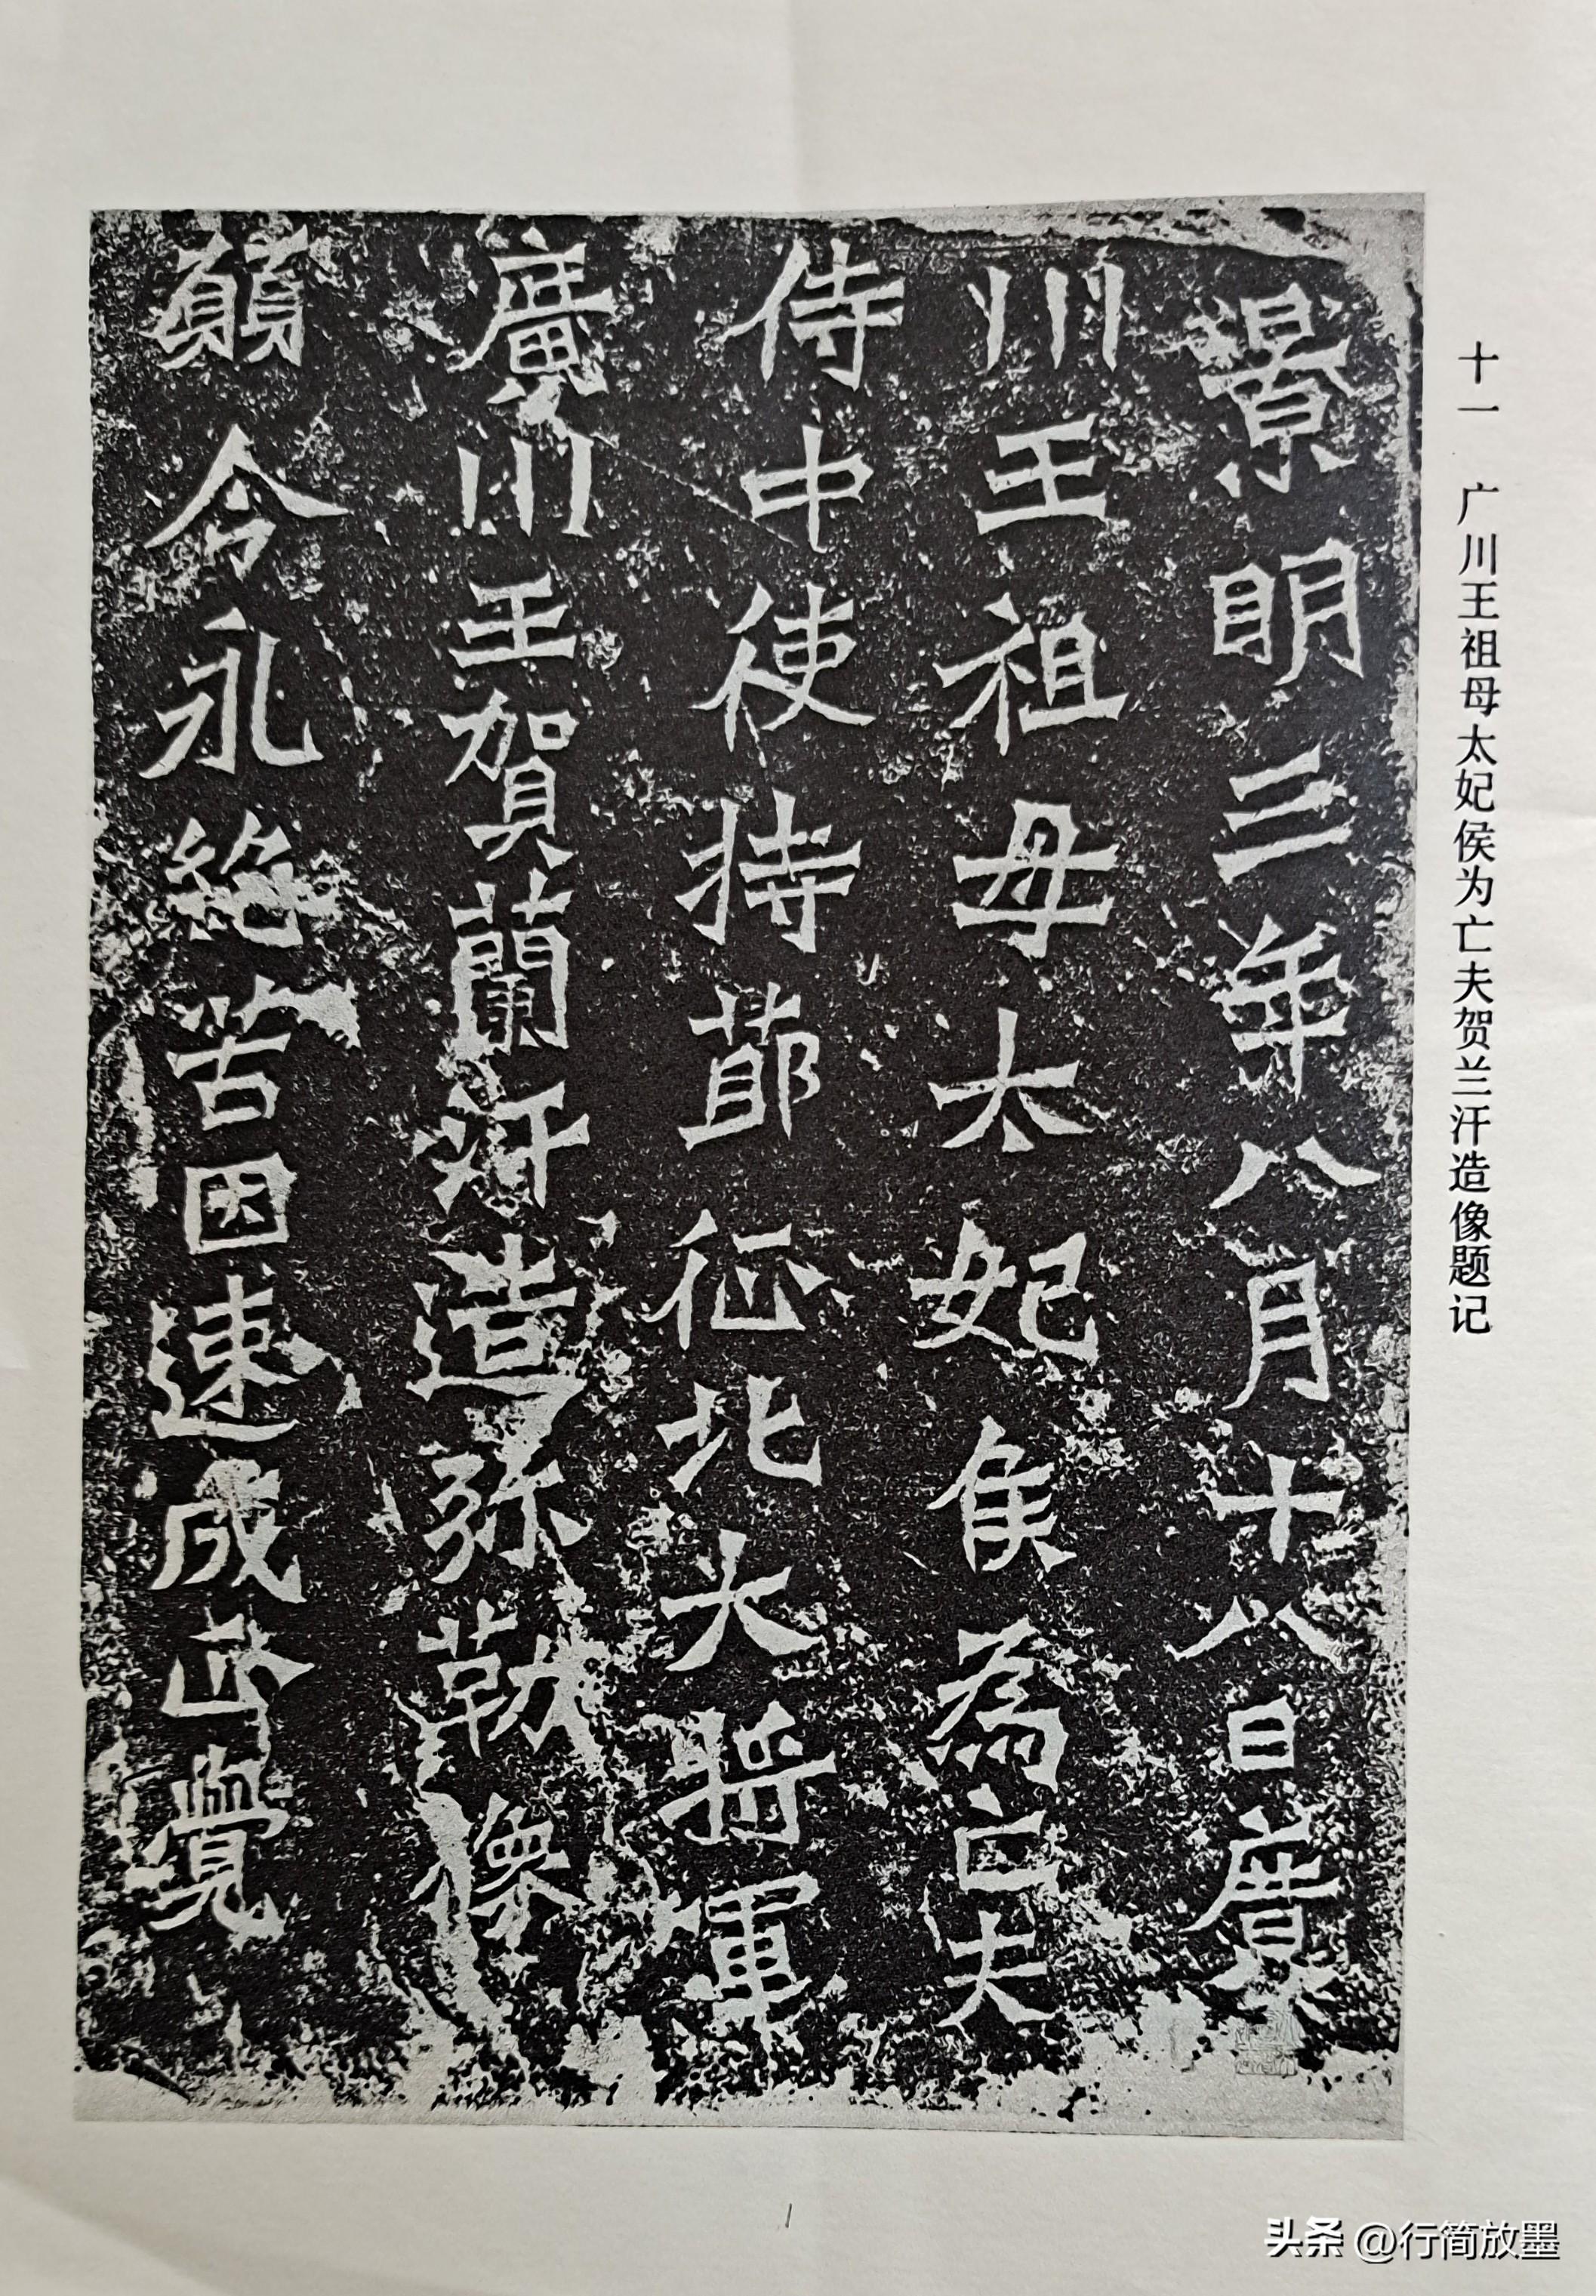 十一 广川王祖母太妃侯为亡夫贺兰汗造像题记
景明三年八月十八日廣
川王祖母太妃侯為亡夫
侍中使持節征北大將軍
廣川王賀蘭汗造弥勒像
願令永絕苦因速成正覺
头条 @行简放墨